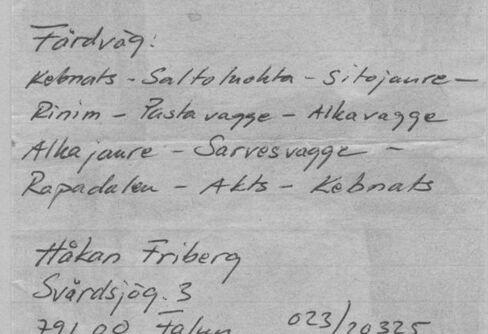 Färdväg:
Kebnats - Saltoluokta - Sitojaure -
Rinim - Pastavagge - Alkavagge
Alkajaure - Sarvesvagge -
Rapadalen - Akts - Kebnats
Håkan Friberg
Svärdsjög. 3
791 00 Falun 023/20325